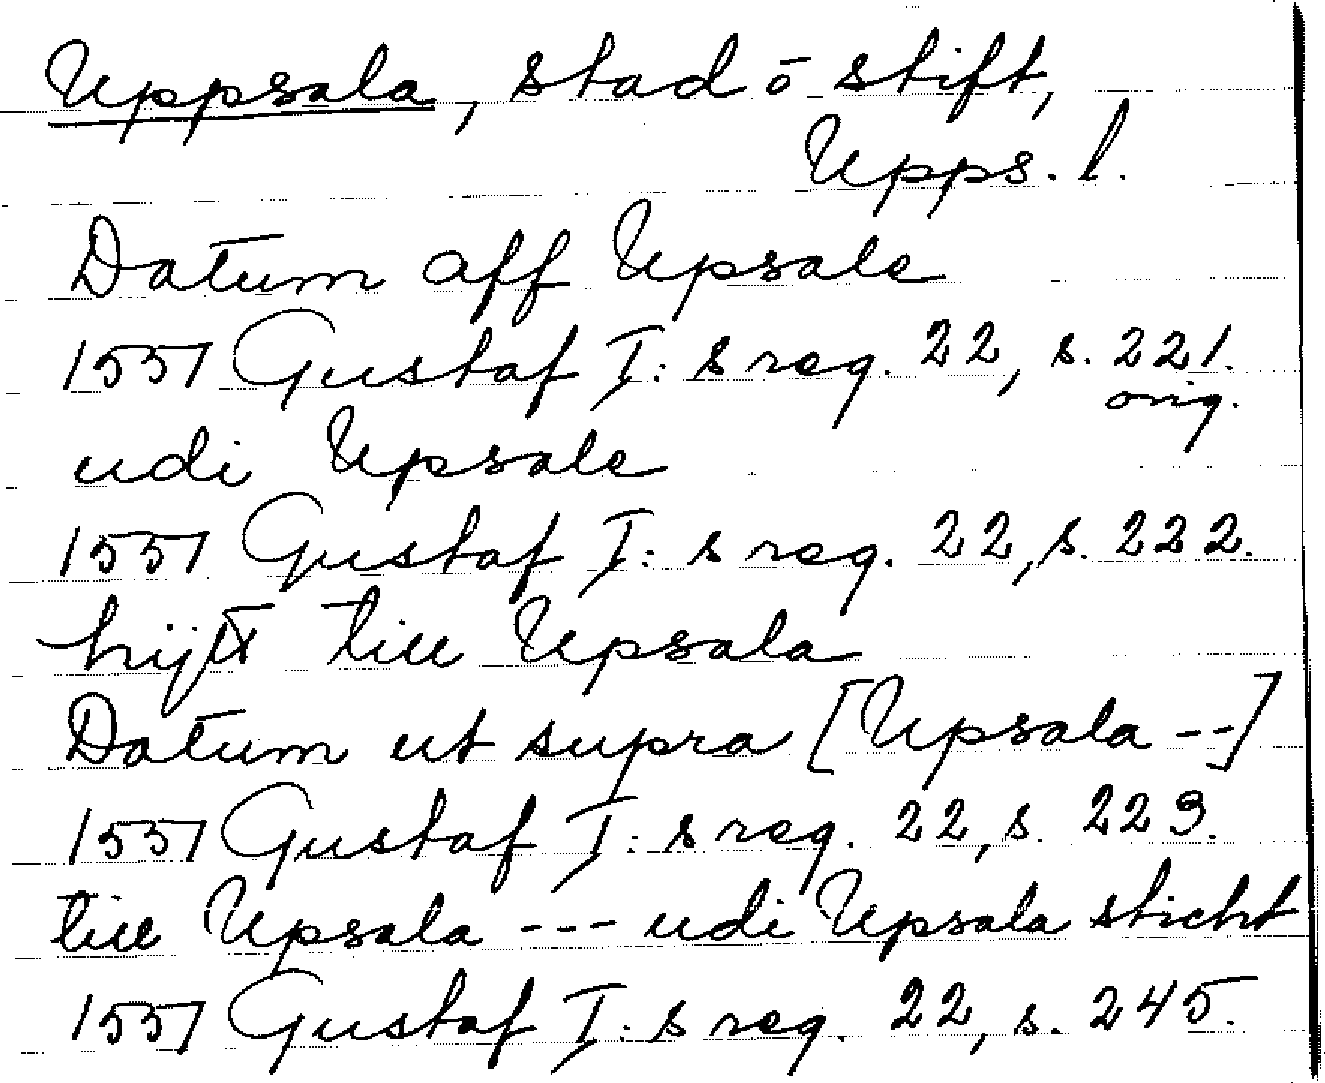 Uppsala, stad o stift,
Upps. l.
Datum aff Upsale
1557 Gustaf I:s reg. 22, s. 221.
orig.
udi Upsale
1557 Gustaf I:s reg. 22, s. 222.
hijtt till Upsala
Datum ut supra [Upsala --]
1557 Gustaf I:s reg. 22, s. 223.
till Upsala --- udi Upsala sticht
1557 Gustaf I:s reg. 22, s. 245.